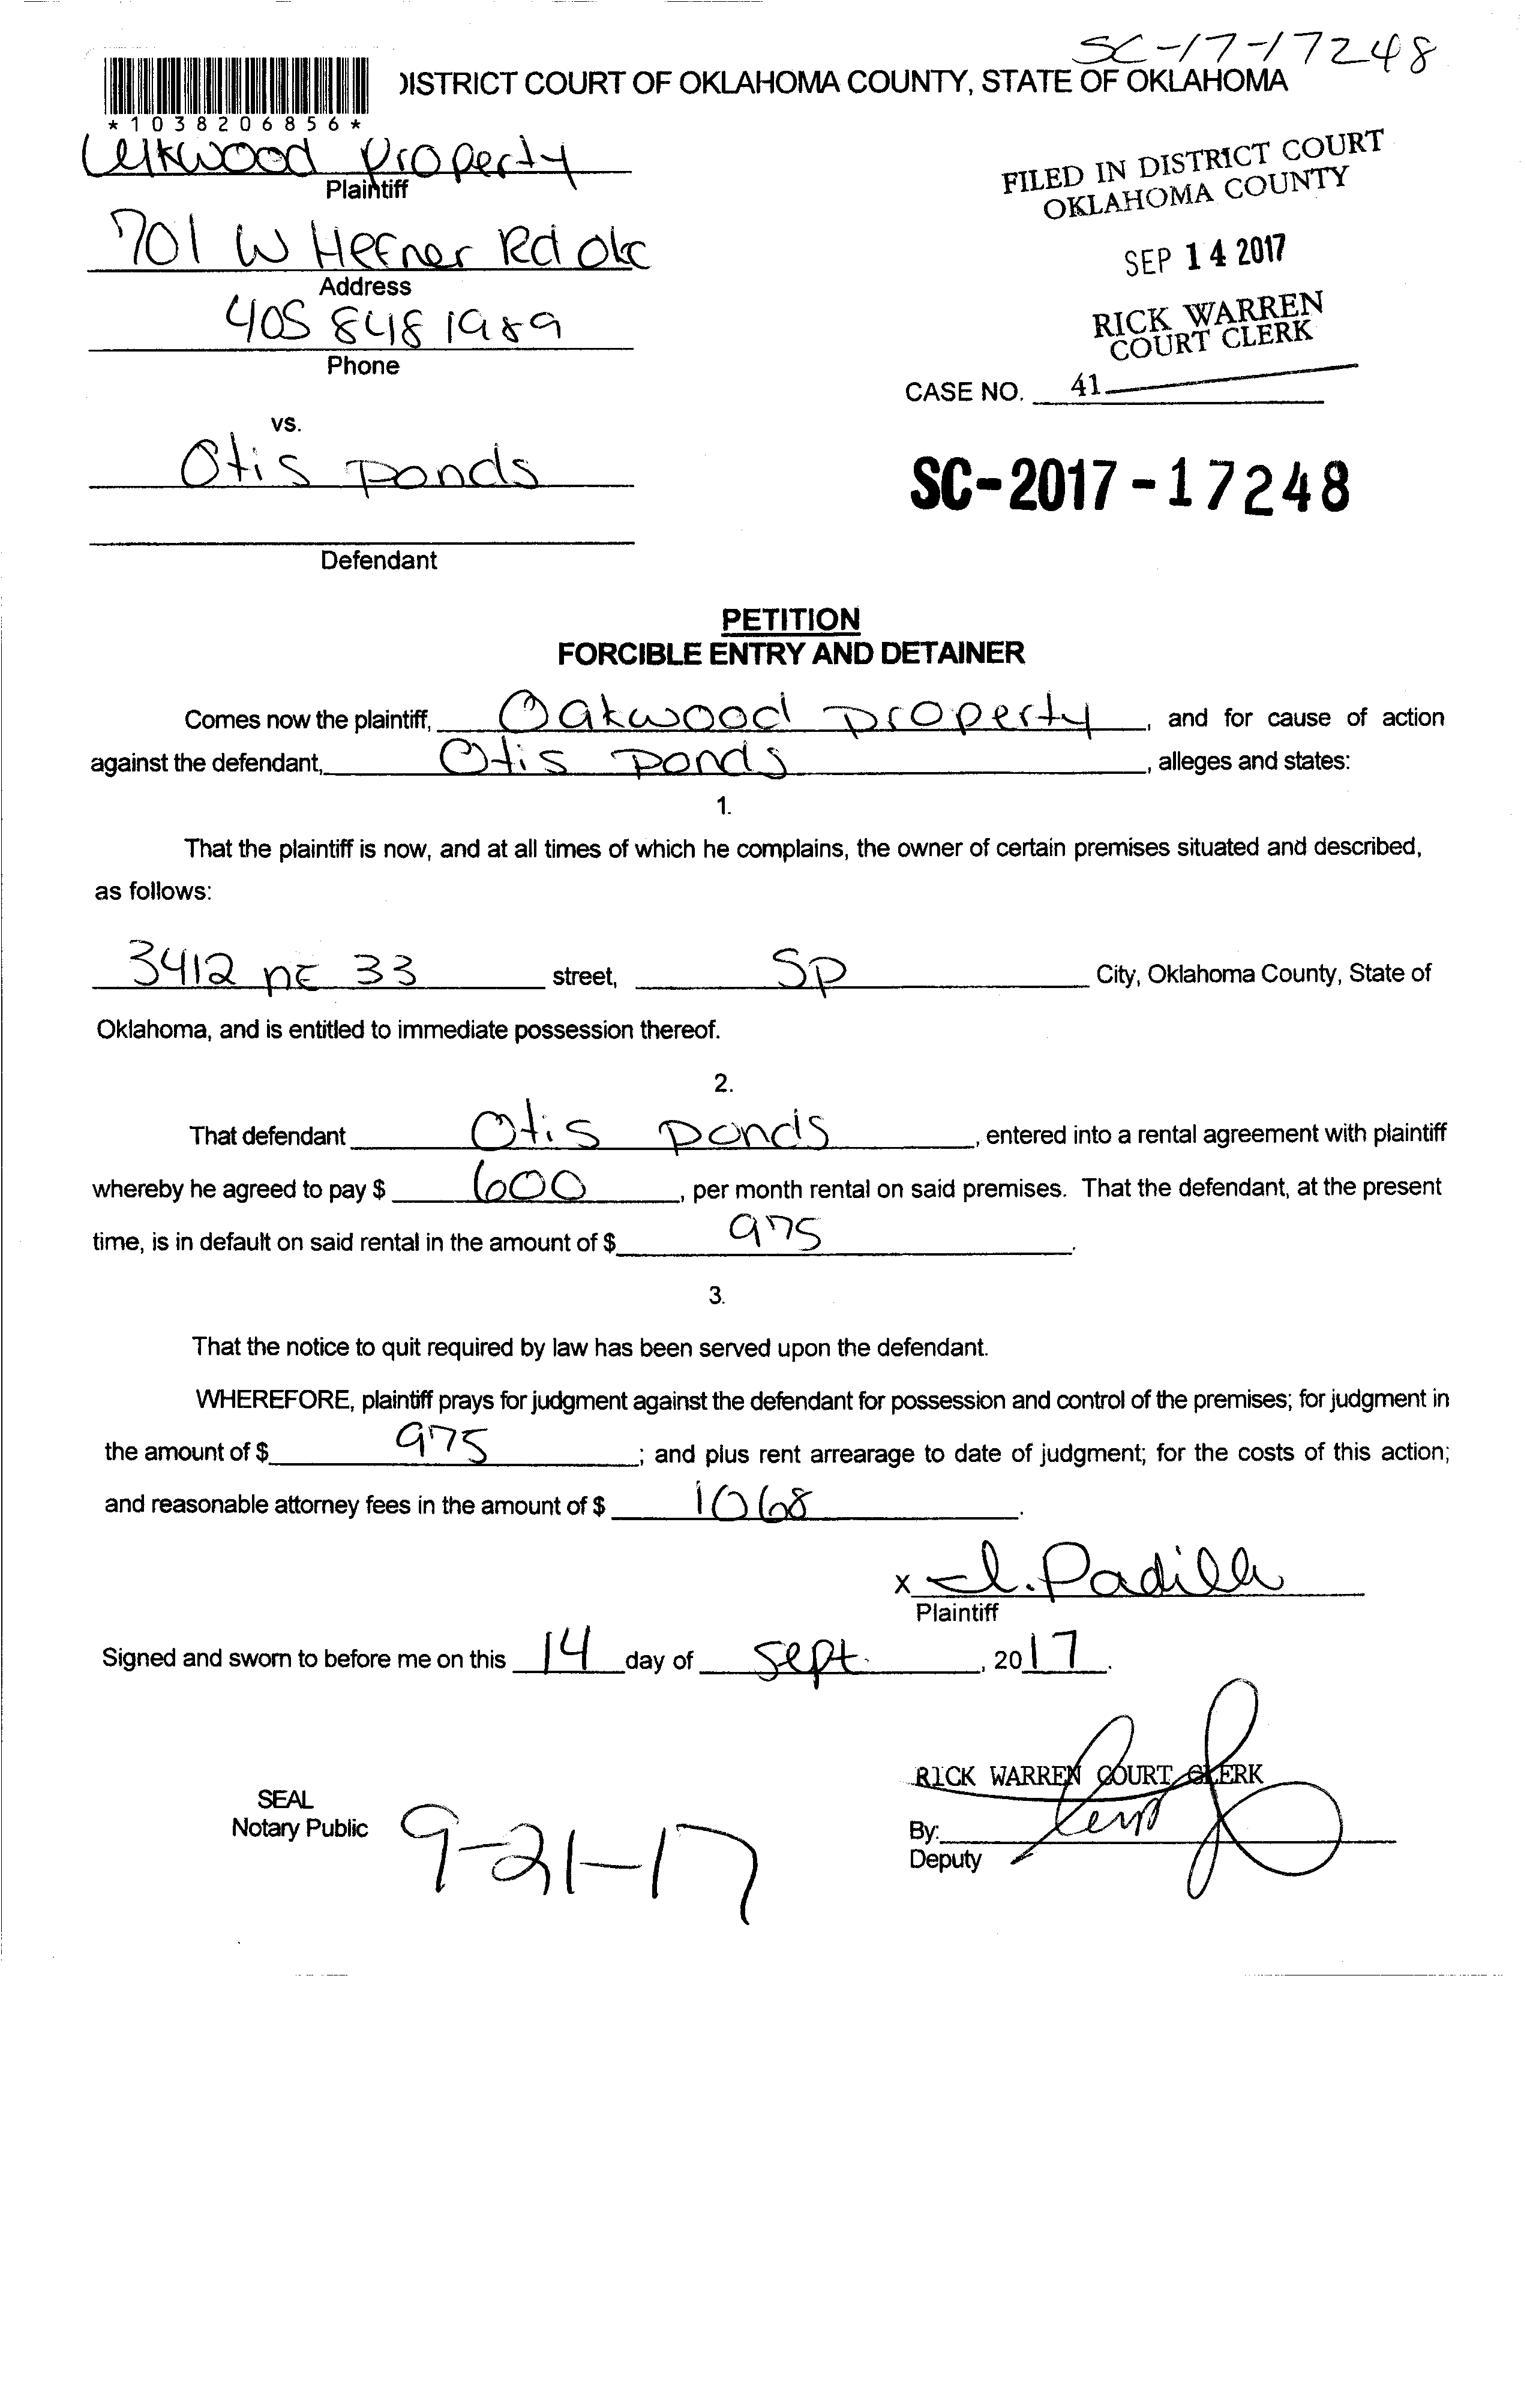 SC-17-17248
DISTRICT COURT OF OKLAHOMA COUNTY, STATE OF OKLAHOMA
*1038206856*
Oakwood Property
Plaintiff
FILED IN DISTRICT COURT
OKLAHOMA COUNTY
701 W Hefner Rd Okc
Address
SEP 14 2017
405 848 1989
Phone
RICK WARREN
COURT CLERK
CASE NO. 41
vs.
Otis Ponds
SC-2017-17248
Defendant
PETITION
FORCIBLE ENTRY AND DETAINER
Comes now the plaintiff, Oakwood Property, and for cause of action
against the defendant, Otis Ponds, alleges and states:
1.
That the plaintiff is now, and at all times of which he complains, the owner of certain premises situated and described,
as follows:
3412 NE 33 street, Sp City, Oklahoma County, State of
Oklahoma, and is entitled to immediate possession thereof.
2.
That defendant Otis Ponds, entered into a rental agreement with plaintiff
whereby he agreed to pay $ 600, per month rental on said premises. That the defendant, at the present
time, is in default on said rental in the amount of $ 975.
3.
That the notice to quit required by law has been served upon the defendant.
WHEREFORE, plaintiff prays for judgment against the defendant for possession and control of the premises; for judgment in
the amount of $ 975; and plus rent arrearage to date of judgment; for the costs of this action;
and reasonable attorney fees in the amount of $ 1068.
x I. Padilla
Plaintiff
Signed and sworn to before me on this 14 day of Sept., 2017.
RICK WARREN COURT CLERK
SEAL
Notary Public
9-21-17
By:
Deputy